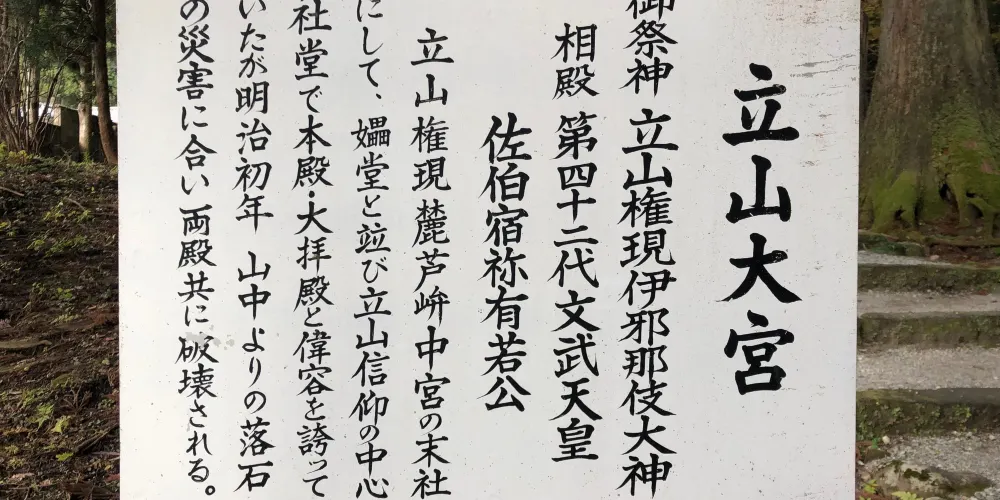 立山大宮
御祭神 立山権現伊邪那伎大神
相殿 第四十二代文武天皇
佐伯宿祢有若公
立山権現麓芦峅中宮の末社
にして、𡣞堂と竝び立山信仰の中心
社堂で本殿・大拝殿と偉容を誇って
いたが明治初年 山中よりの落石
の災害に合い両殿共に破壊される。